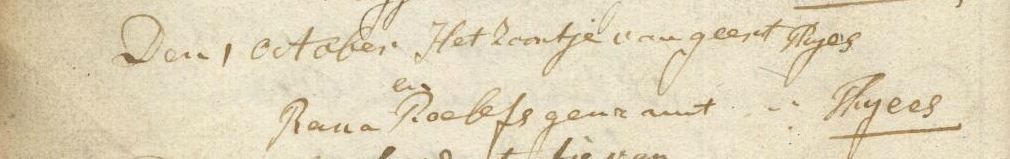 Den 1 october Het Zoontje van geert Thyes
en
Rana Roelefs genaamt Thyees
tje van